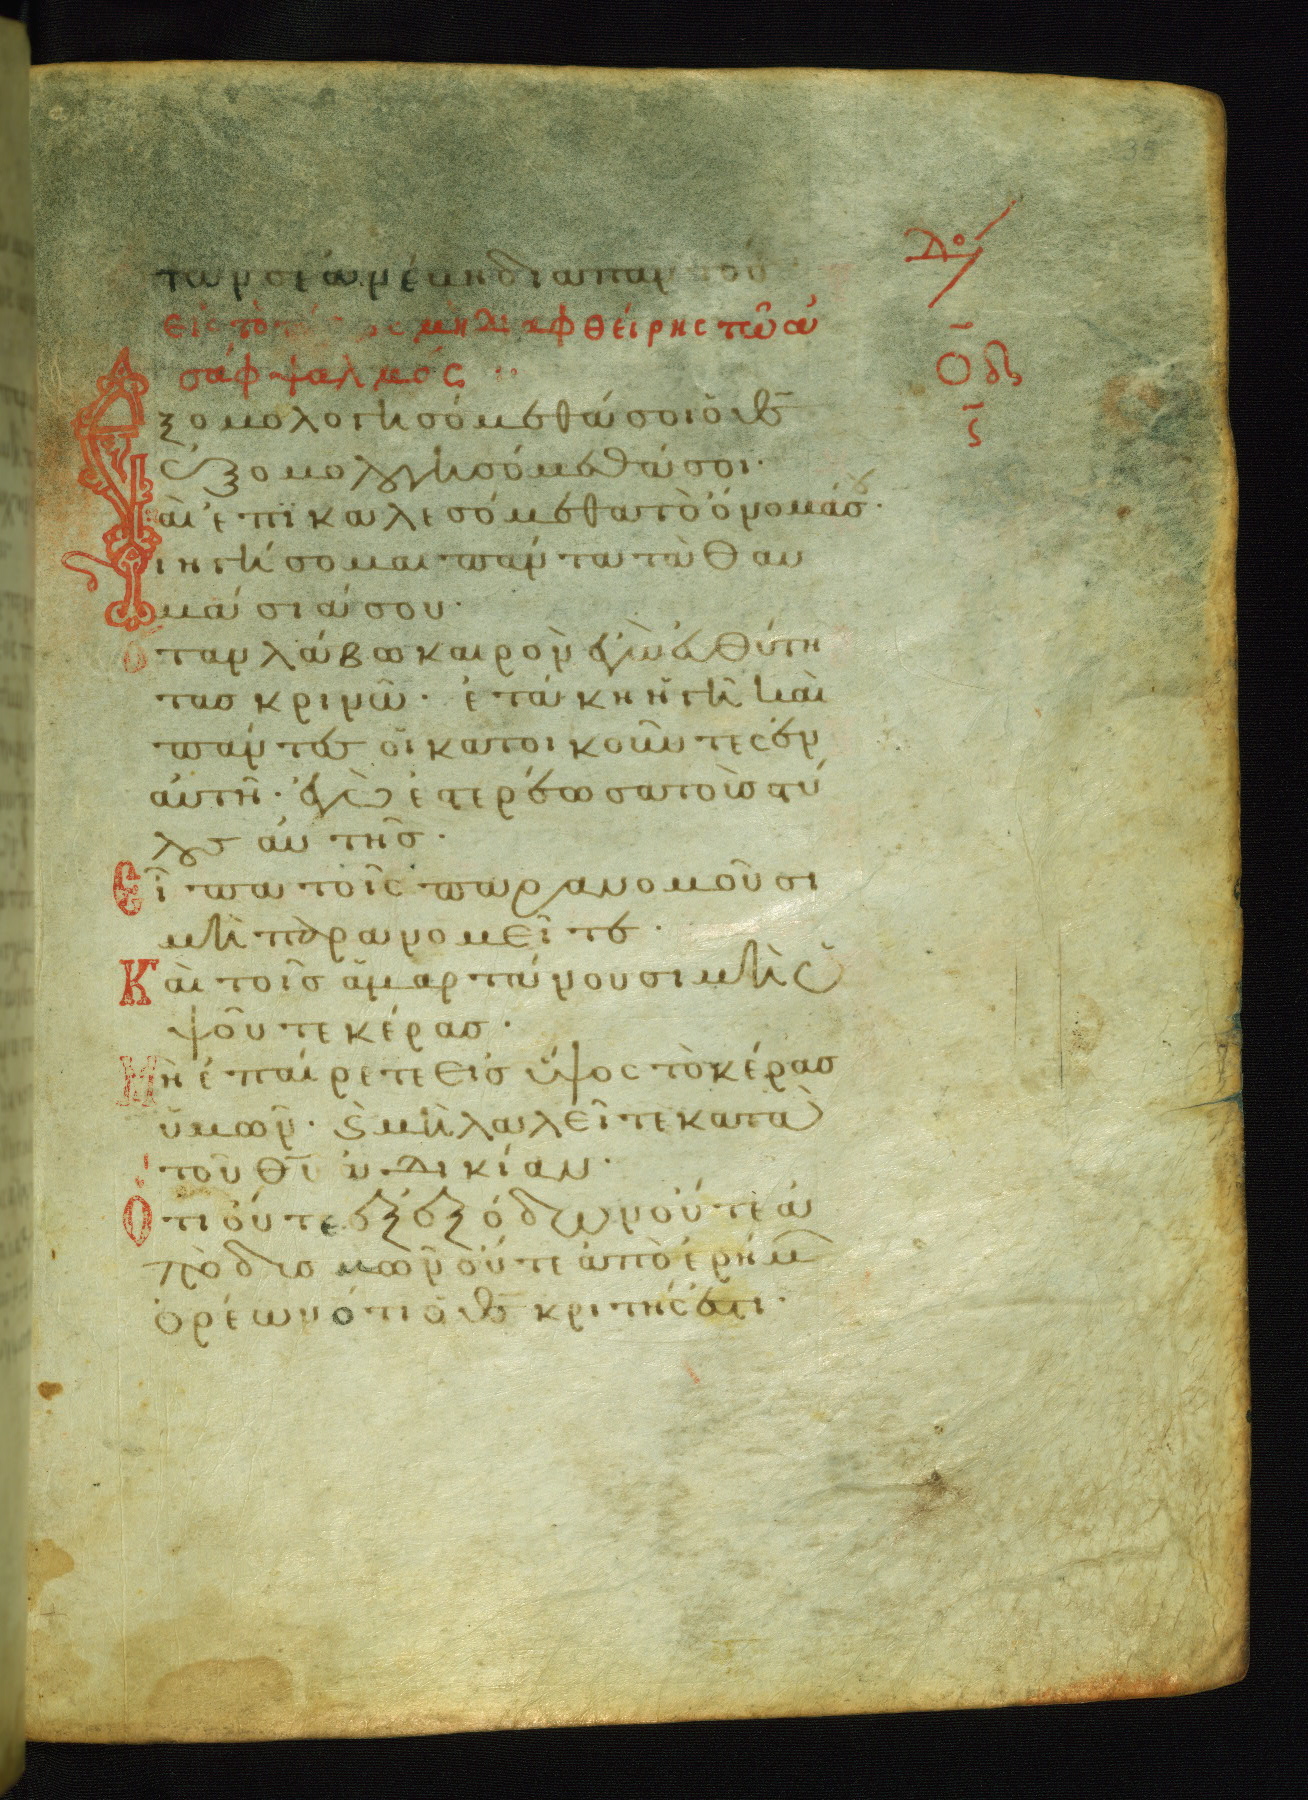 τῶν σιῶν ἀνέβη διαπαντοσ
Εἰς τὸ τέλος μὴ διαφθείρης τῶ ἀ
σάφ ψαλμός
Ἐξομολογησόμεθά σοι ὁ θς
ἐξομολογησόμεθά σοι·
Καὶ ἐπικαλεσόμεθα τὸ ὄνομά σου·
διηγήσομαι πάντα τὰ θαυ
μάσιά σου·
Ὅταν λάβω καιρὸν ἐγὼ εὐθύτη
τασ κρινῶ· ἐτάκη ἡ γῆ καὶ
πάντες οἱ κατοικοῦντες ἐν
αὐτῆ· ἐγὼ ἐστερέωσα τοὺσ στύ
λουσ αὐτῆσ·
Εἶπα τοῖς παρανομοῦσι
μὴ παρανομεῖτε·
Καὶ τοῖσ ἁμαρτάνουσι μὴ ὑ
ψοῦτε κέρασ·
Μὴ ἐπαίρετε εἰσ ὕψος τὸ κέρασ
ὑμῶν· ϗ μὴ λαλεῖτε κατὰ
τοῦ θυ ἀδικίαν·
Ὅτι οὔτε ἐξ ἐξόδων οὔτε ἀ
πὸ δυσμῶν οὔτε ἀπὸ ἐρήμων
ὀρέων ὅτι ὁ θς κριτής ἐστι·
οδ
35